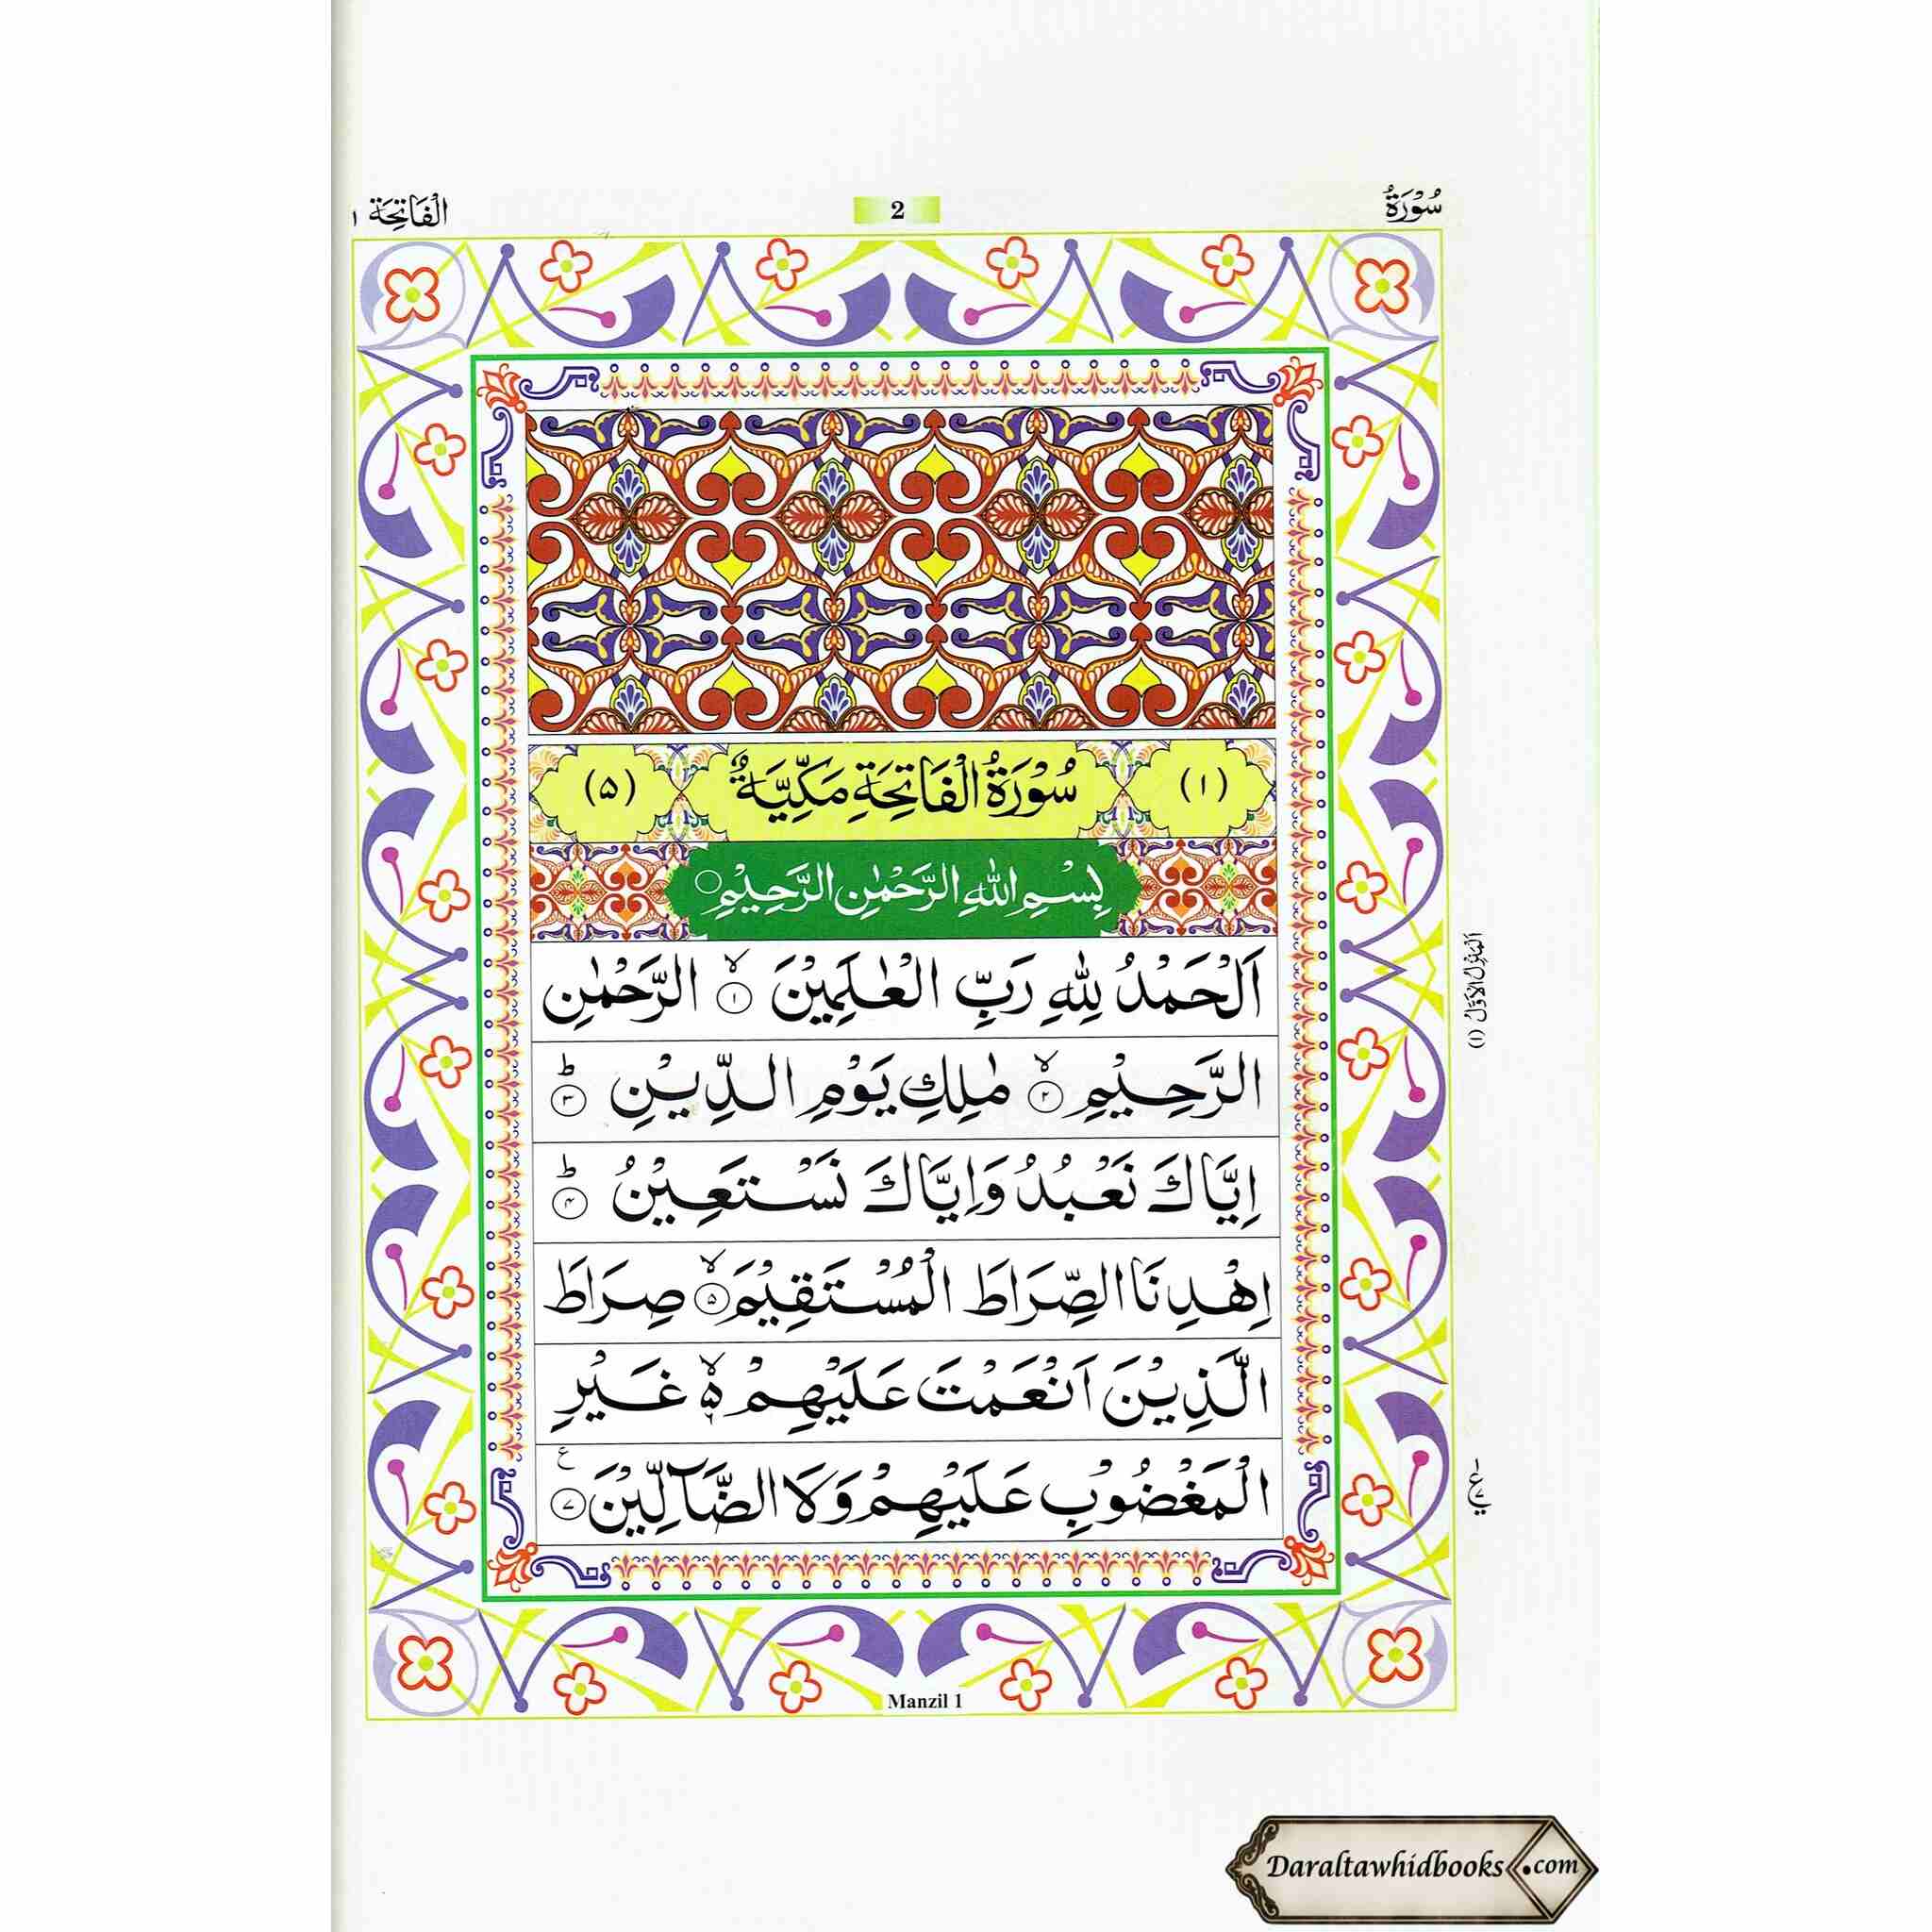 سُوْرَةُ 2 الْفَاتِحَة ١
(١) سُوْرَةُ الْفَاتِحَةِ مَكِّيَّةٌ (۵)
بِسْمِ اللّٰهِ الرَّحْمٰنِ الرَّحِيْمِ ○
اَلْحَمْدُ لِلّٰهِ رَبِّ الْعٰلَمِيْنَ ۙ﴿۱﴾ الرَّحْمٰنِ
الرَّحِيْمِ ۙ﴿۲﴾ مٰلِكِ يَوْمِ الدِّيْنِ ؕ﴿۳﴾
اِيَّاكَ نَعْبُدُ وَاِيَّاكَ نَسْتَعِيْنُ ؕ﴿۴﴾
اِهْدِنَا الصِّرَاطَ الْمُسْتَقِيْمَ ۙ﴿۵﴾ صِرَاطَ
الَّذِيْنَ اَنْعَمْتَ عَلَيْهِمْ ۙ۬ۦ غَيْرِ
الْمَغْضُوْبِ عَلَيْهِمْ وَلَا الضَّآلِّيْنَ ﴿۷﴾ ع
اَلْمَنْزِلُ الْاَوَّلُ (١)
Manzil 1
Daraltawhidbooks.com